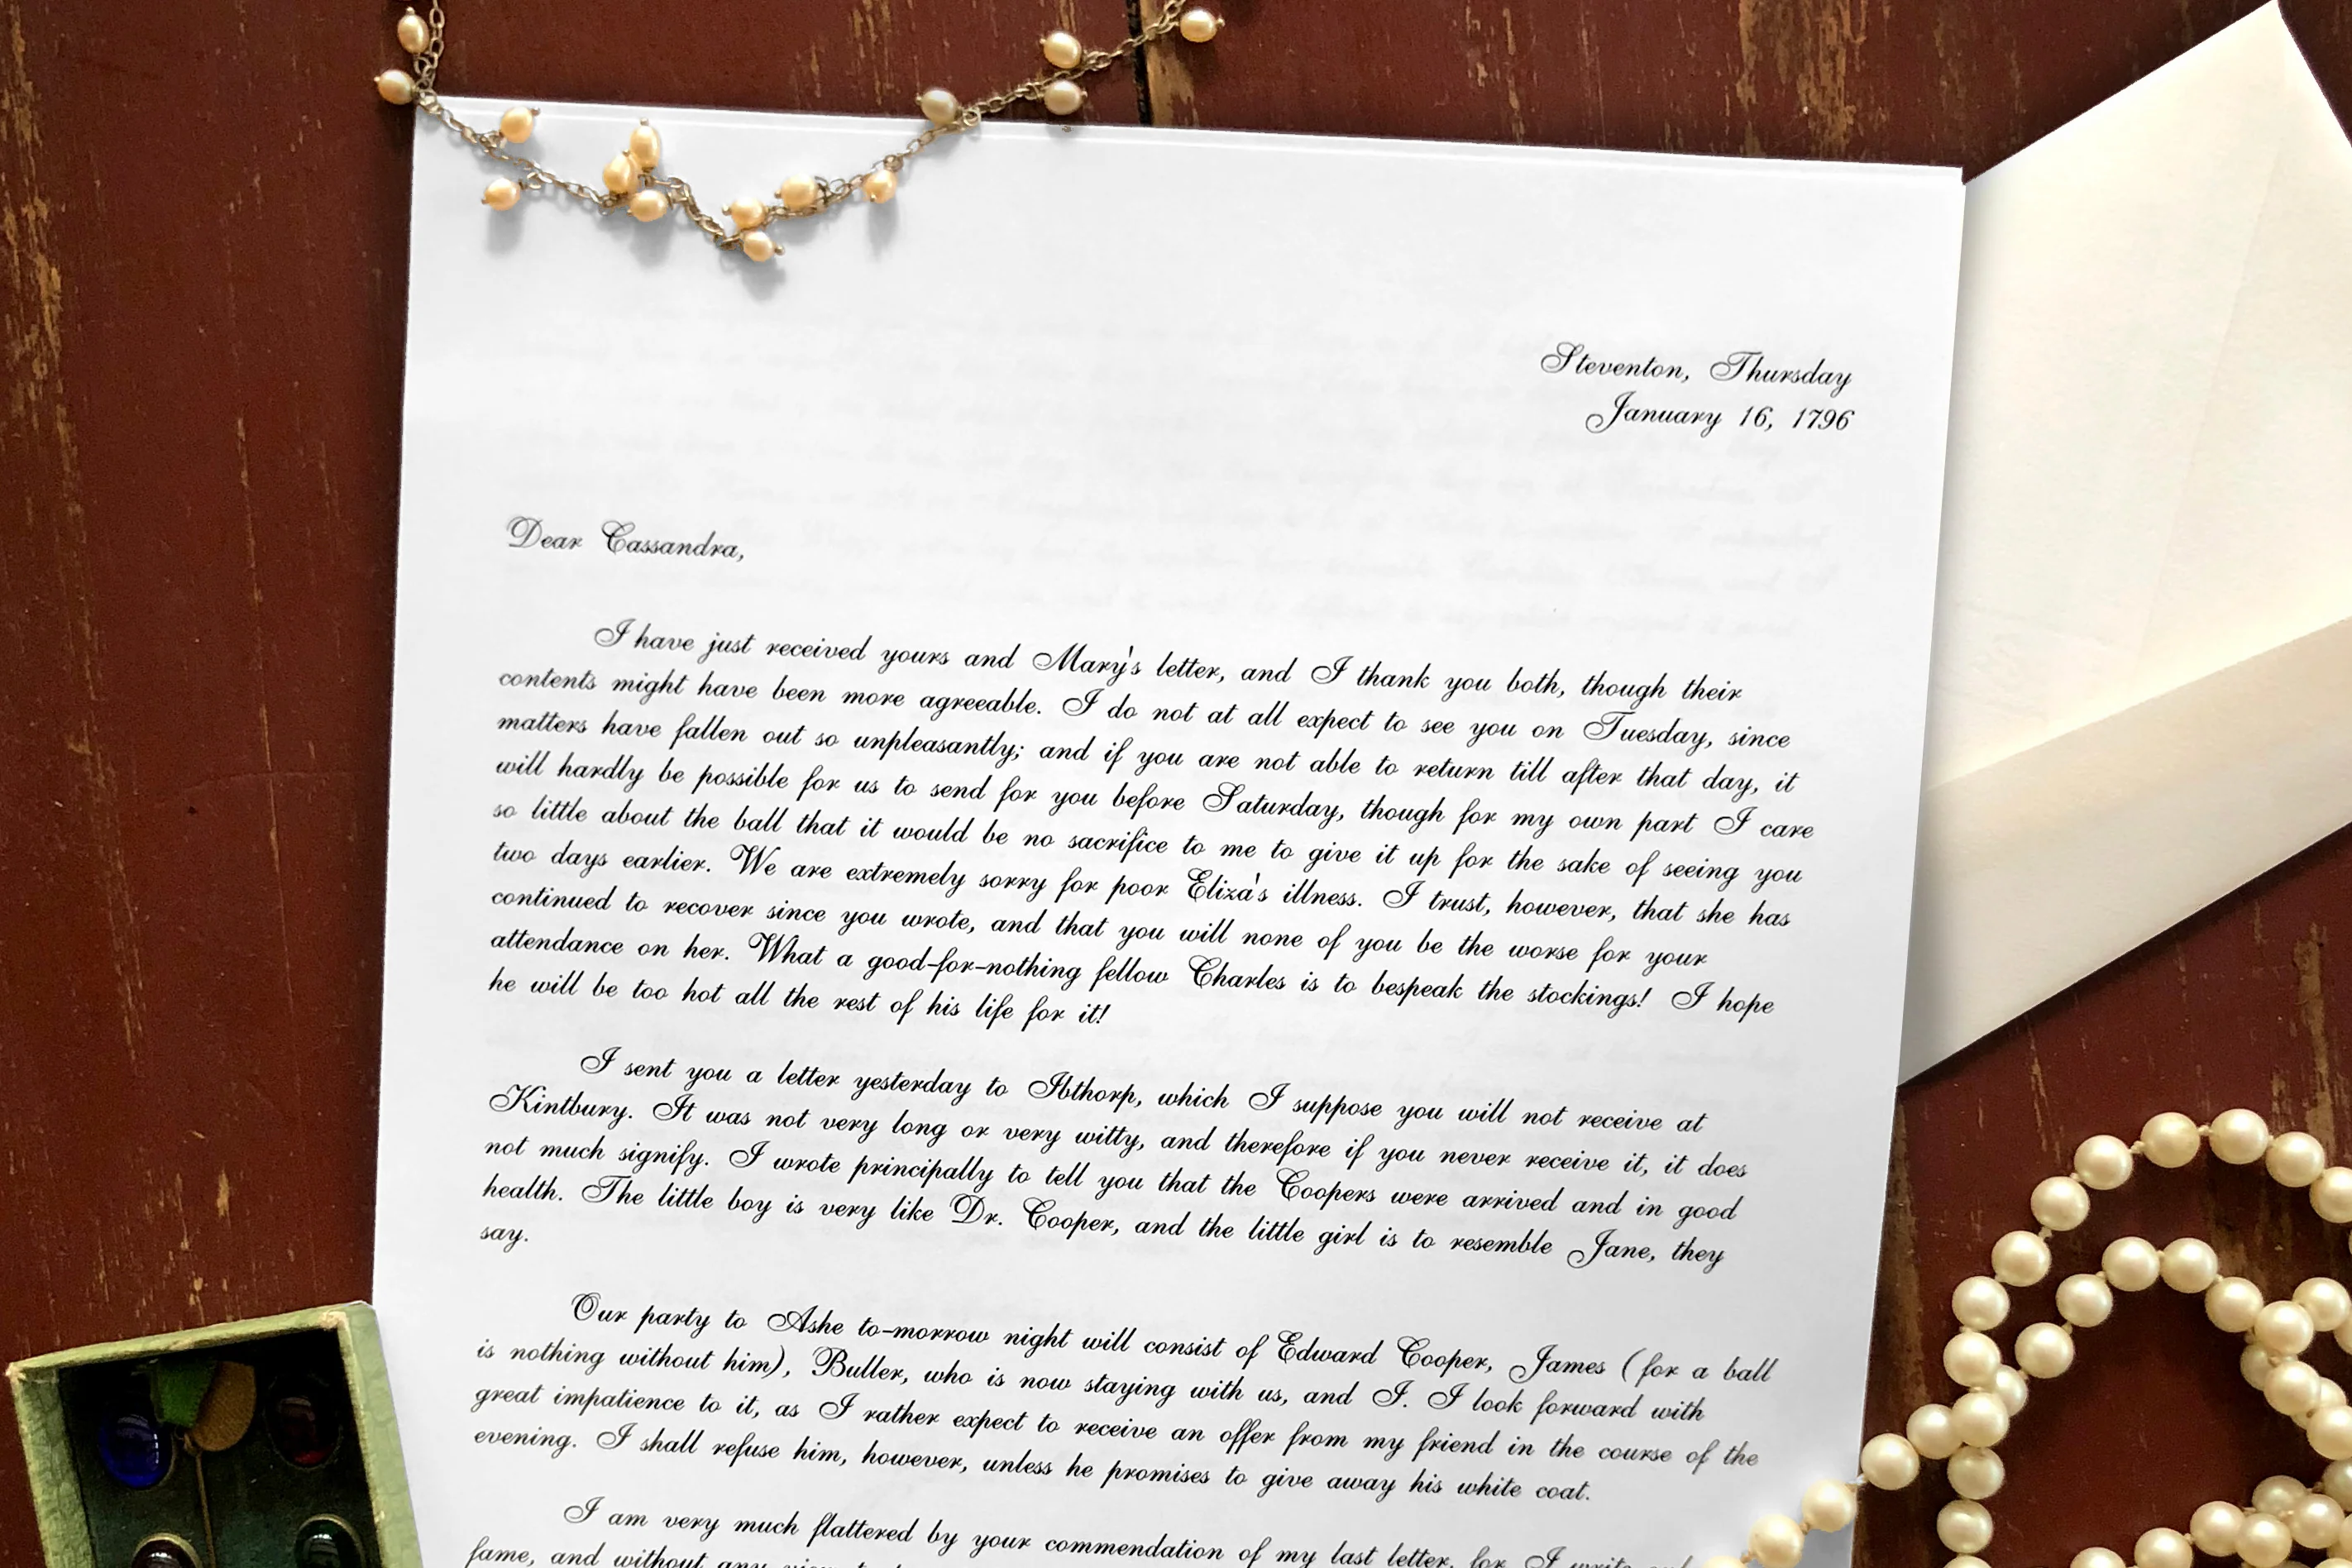 Steventon, Thursday
January 16, 1796
Dear Cassandra,
I have just received yours and Mary's letter, and I thank you both, though their
contents might have been more agreeable. I do not at all expect to see you on Tuesday, since
matters have fallen out so unpleasantly; and if you are not able to return till after that day, it
will hardly be possible for us to send for you before Saturday, though for my own part I care
so little about the ball that it would be no sacrifice to me to give it up for the sake of seeing you
two days earlier. We are extremely sorry for poor Eliza's illness. I trust, however, that she has
continued to recover since you wrote, and that you will none of you be the worse for your
attendance on her. What a good-for-nothing fellow Charles is to bespeak the stockings! I hope
he will be too hot all the rest of his life for it!
I sent you a letter yesterday to Ibthorp, which I suppose you will not receive at
Kintbury. It was not very long or very witty, and therefore if you never receive it, it does
not much signify. I wrote principally to tell you that the Coopers were arrived and in good
health. The little boy is very like Dr. Cooper, and the little girl is to resemble Jane, they
say.
Our party to Ashe to-morrow night will consist of Edward Cooper, James (for a ball
is nothing without him), Buller, who is now staying with us, and I. I look forward with
great impatience to it, as I rather expect to receive an offer from my friend in the course of the
evening. I shall refuse him, however, unless he promises to give away his white coat.
I am very much flattered by your commendation of my last letter, for I write
fame, and without any